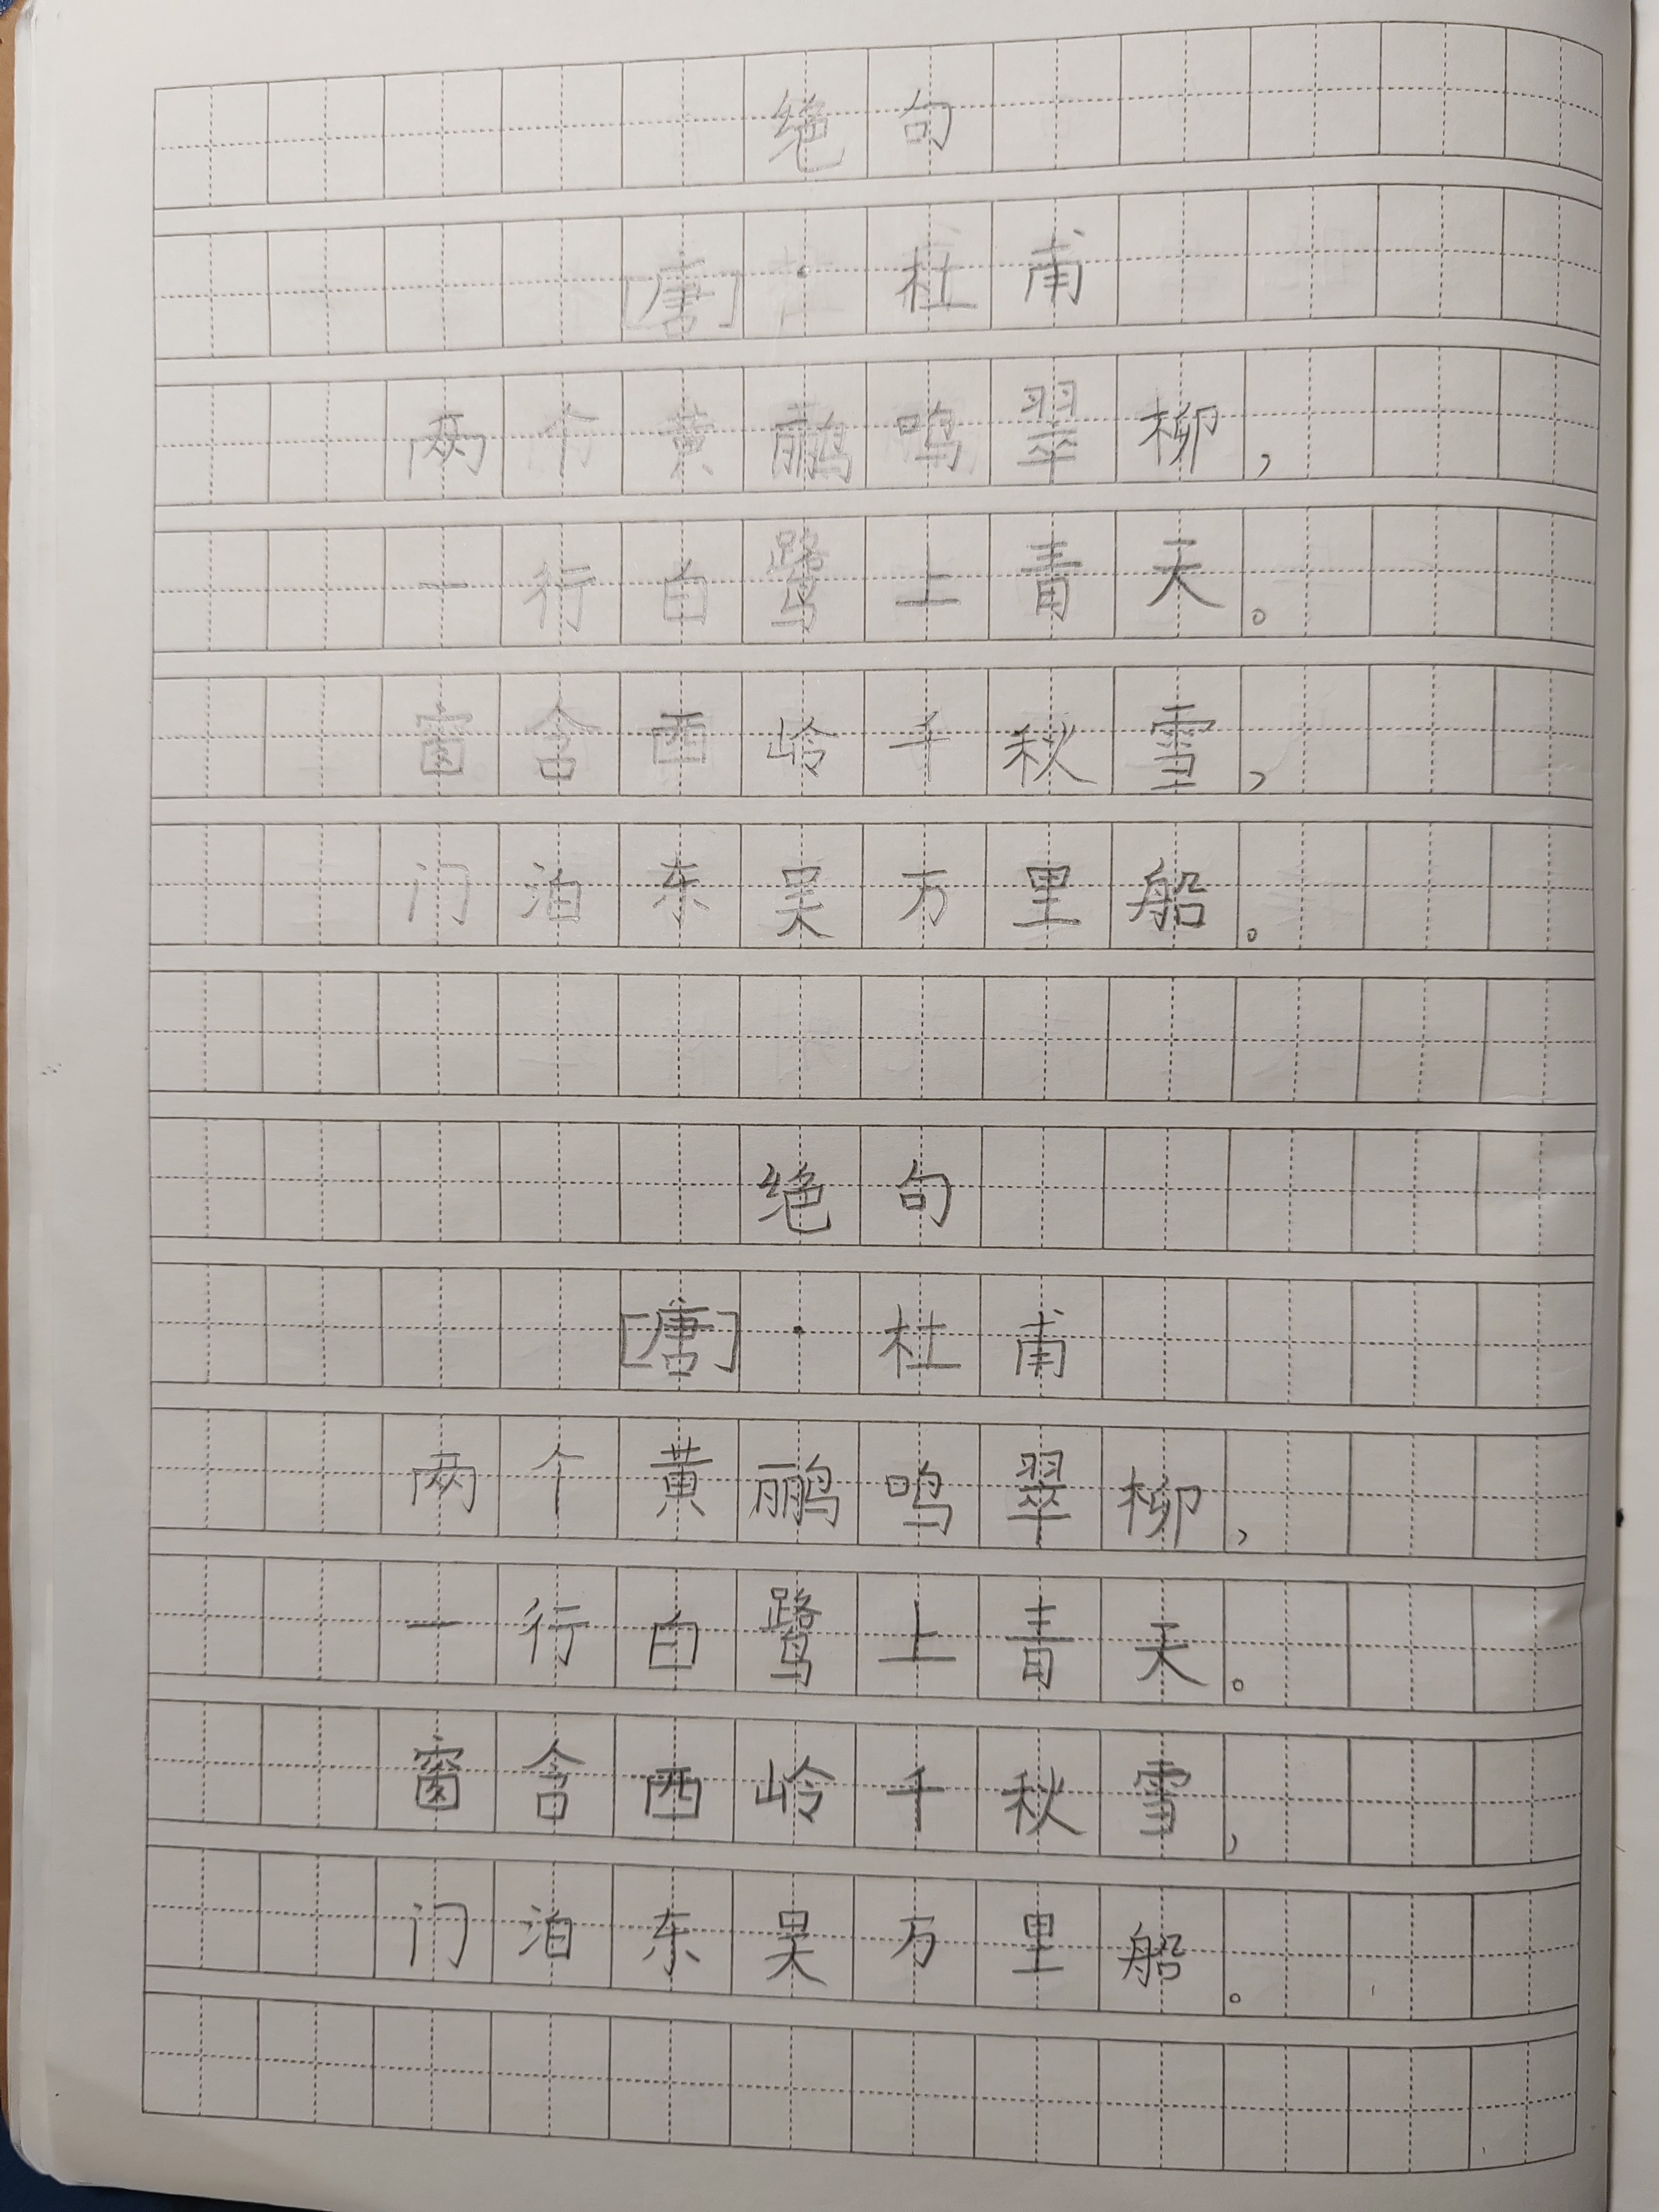 绝句
[唐]·杜甫
两个黄鹂鸣翠柳，
一行白鹭上青天。
窗含西岭千秋雪，
门泊东吴万里船。
绝句
[唐]·杜甫
两个黄鹂鸣翠柳，
一行白鹭上青天。
窗含西岭千秋雪，
门泊东吴万里船。